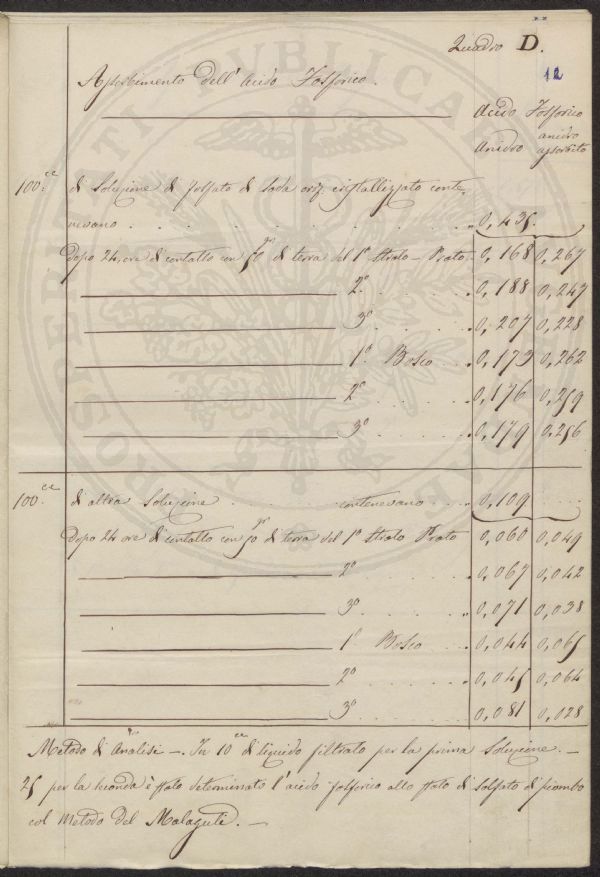 Quadro D.
12
Assorbimento dell'acido Fosforico.
Acido Anidro
Fosforico anidro assorbito
100.cc di Soluzione di fosfato di Soda ord. cristallizzato conte,
nevano . . . 0,435
Dopo 24 ore di contatto con 50 gr di terra del 1° Strato - Prato 0,168 0,267
2° . . . 0,188 0,247
3° . . . 0,207 0,228
1° Bosco . . 0,173 0,262
2° . . . 0,176 0,259
3° . . . 0,179 0,256
100.cc di altra Soluzione . . . contenevano . . . 0,109 . . .
Dopo 24 ore di contatto con 50 gr di terra del 1° Strato Prato 0,060 0,049
2° . . . 0,067 0,042
3° . . . 0,071 0,038
1° Bosco . . . 0,044 0,065
2° . . . 0,045 0,064
3° . . . 0,081 0,028
Metodo di Analisi —. In 10 cc di liquido filtrato per la prima Soluzione. —
25 per la seconda è stato determinato l'acido fosforico allo stato di solfato di piombo
col Metodo del Malaguti. —
PROSPERITATI PUBLICAE